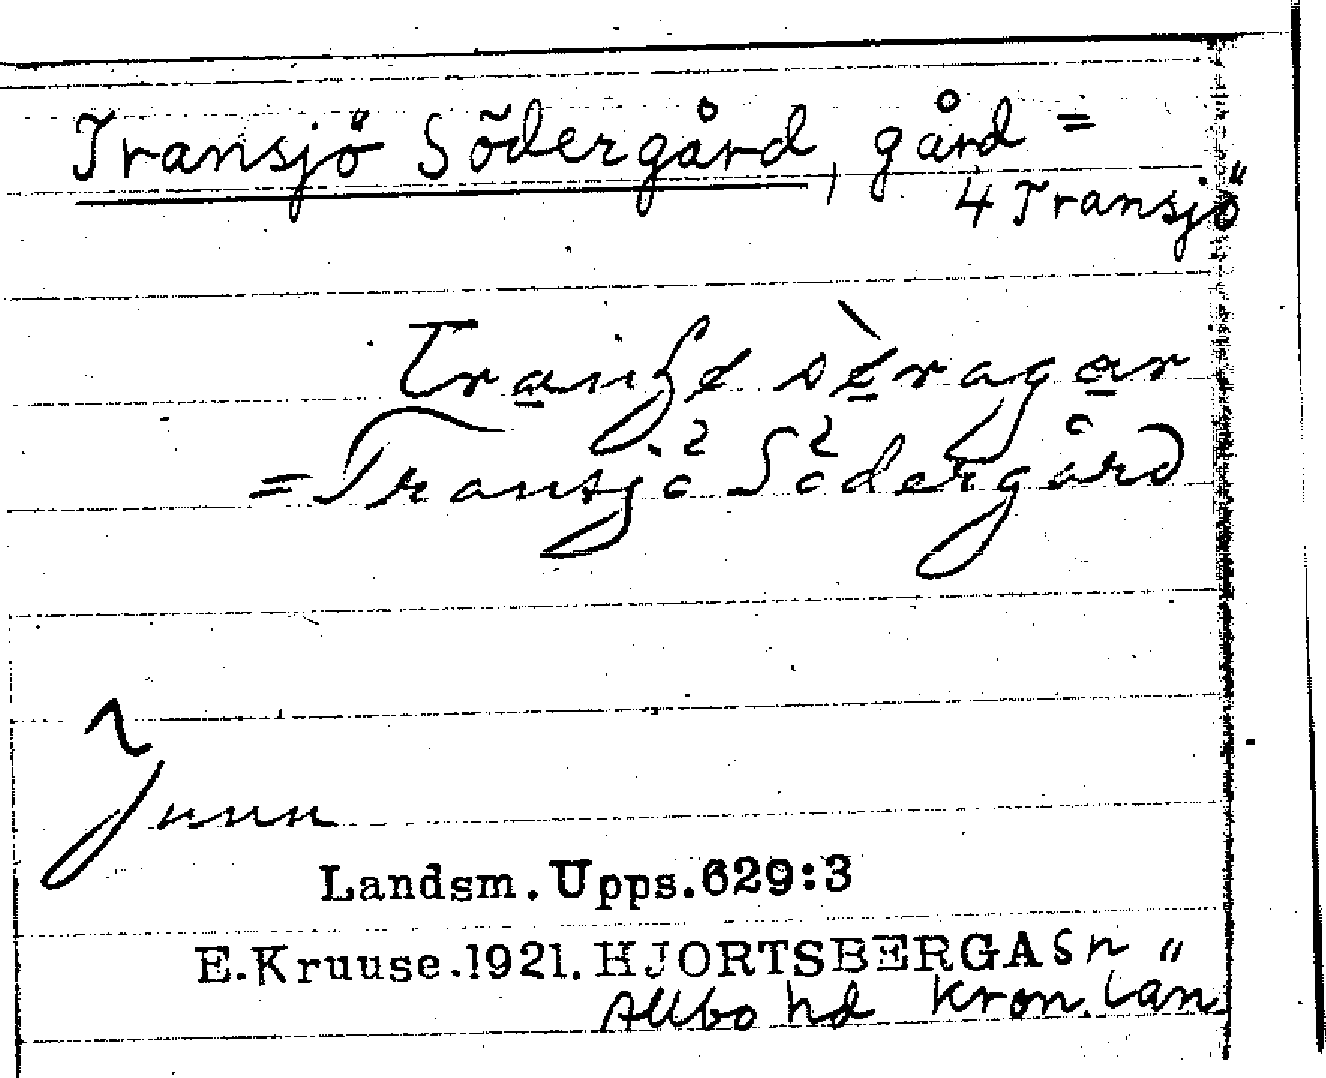 Transjö Södergård, gård =
4 Transjö
= Transjö Södergård
Landsm. Upps. 629:3
E. Kruuse. 1921. HJORTSBERGA Sn
Allbo hd Kron. län